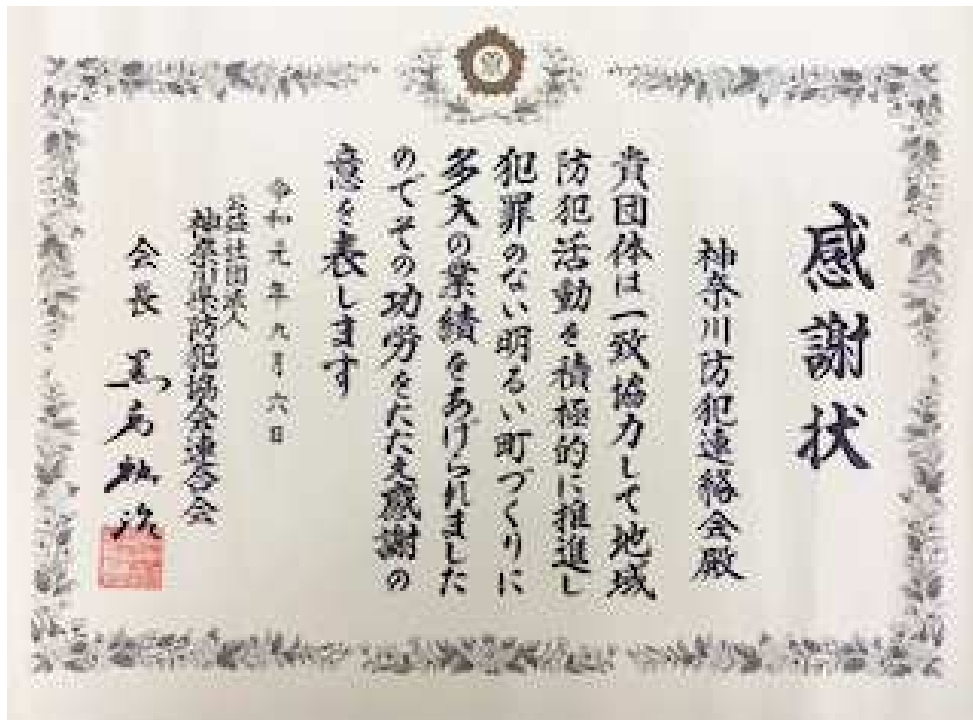 感謝状
神奈川防犯連絡会殿
貴団体は一致協力して地域
防犯活動を積極的に推進し
犯罪のない明るい町づくりに
多大の業績をあげられました
のでその功労をたたえ感謝の
意を表します
令和元年九月六日
公益社団法人
神奈川県防犯協会連合会
会長